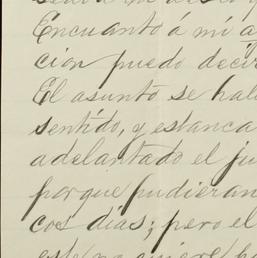 Encuanto á mi a
cion puedo decir
El asunto se hal
sentido, y estanca
adelantado el ju
porque pudieran
cos dias; pero el